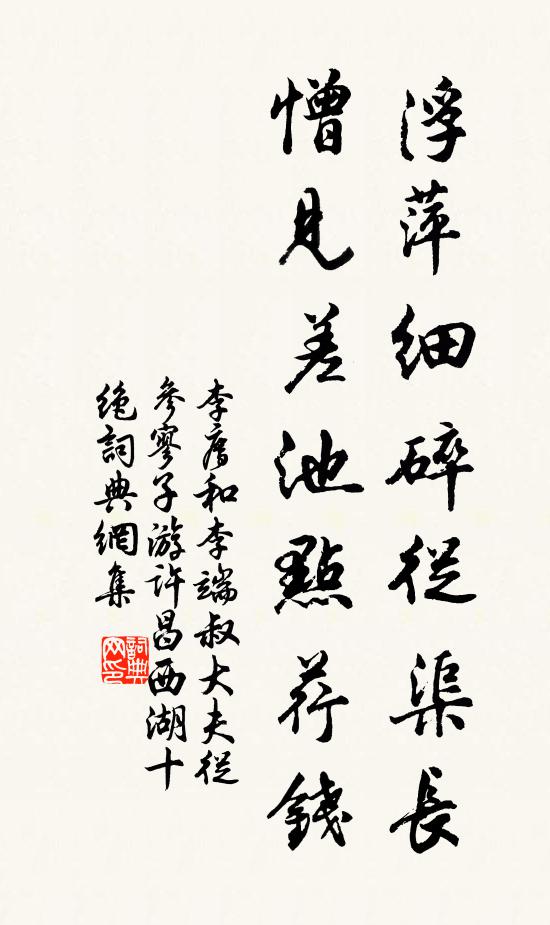 浮萍細碎從渠長
憎見差池點荇錢
李廌和李端叔大夫從
參寥子游許昌西湖十
絕詞典網集
詞典
网印